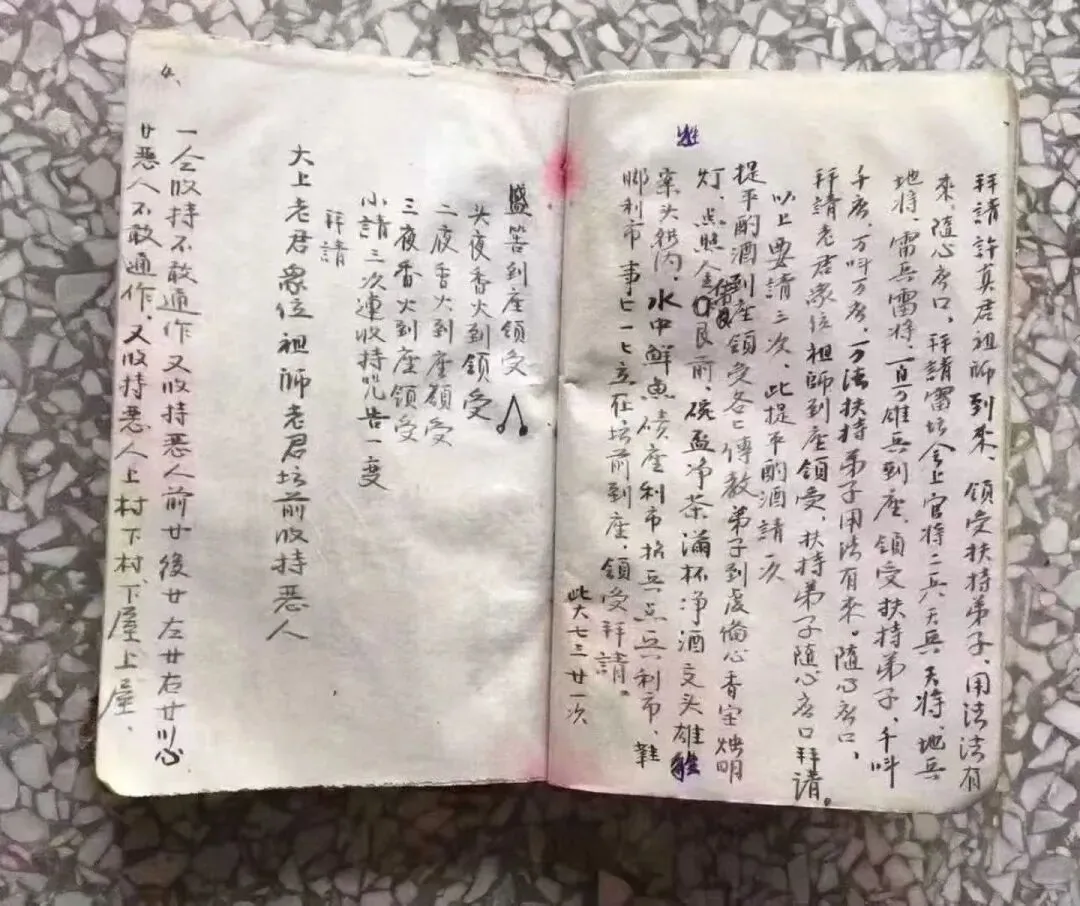 拜請許真君祖師到來、領受扶持弟子、用法法有
來、随心應口、拜請雷坛令上官将二兵、天兵天将、地兵
地将、雷兵雷将、一百万雄兵到座、領受扶持弟子、千叫
千應、万叫万應、万法扶持弟子用法有來。随心應口、
拜請老君衆位祖師到座領受、扶持弟子随心應口拜请。
以上要請三次、此提平酌酒請一次
提平酌酒到座領受各七傳教弟子到虔備心香宝烛明
灯、点照人
艮前、碗盃净茶滿杯净酒文头雄
雞
案头
内、水中鮮鱼
座利市
兵点兵利市、鞋
脚利市
事七一七立在坛前到座、領受拜請。
此大七三廿一次
盛筶到座領受
头夜香火到領受
二夜香火到座領受
三夜香火到座領受
小請三次連收持咒告一度
拜請
大上老君衆位祖師老君坛前收持恶人
4、
一仝收持不敢通作又收持恶人前廿後廿左廿右廿
心
廿恶人不敢通作、又收持恶人上村下村、下屋上屋、